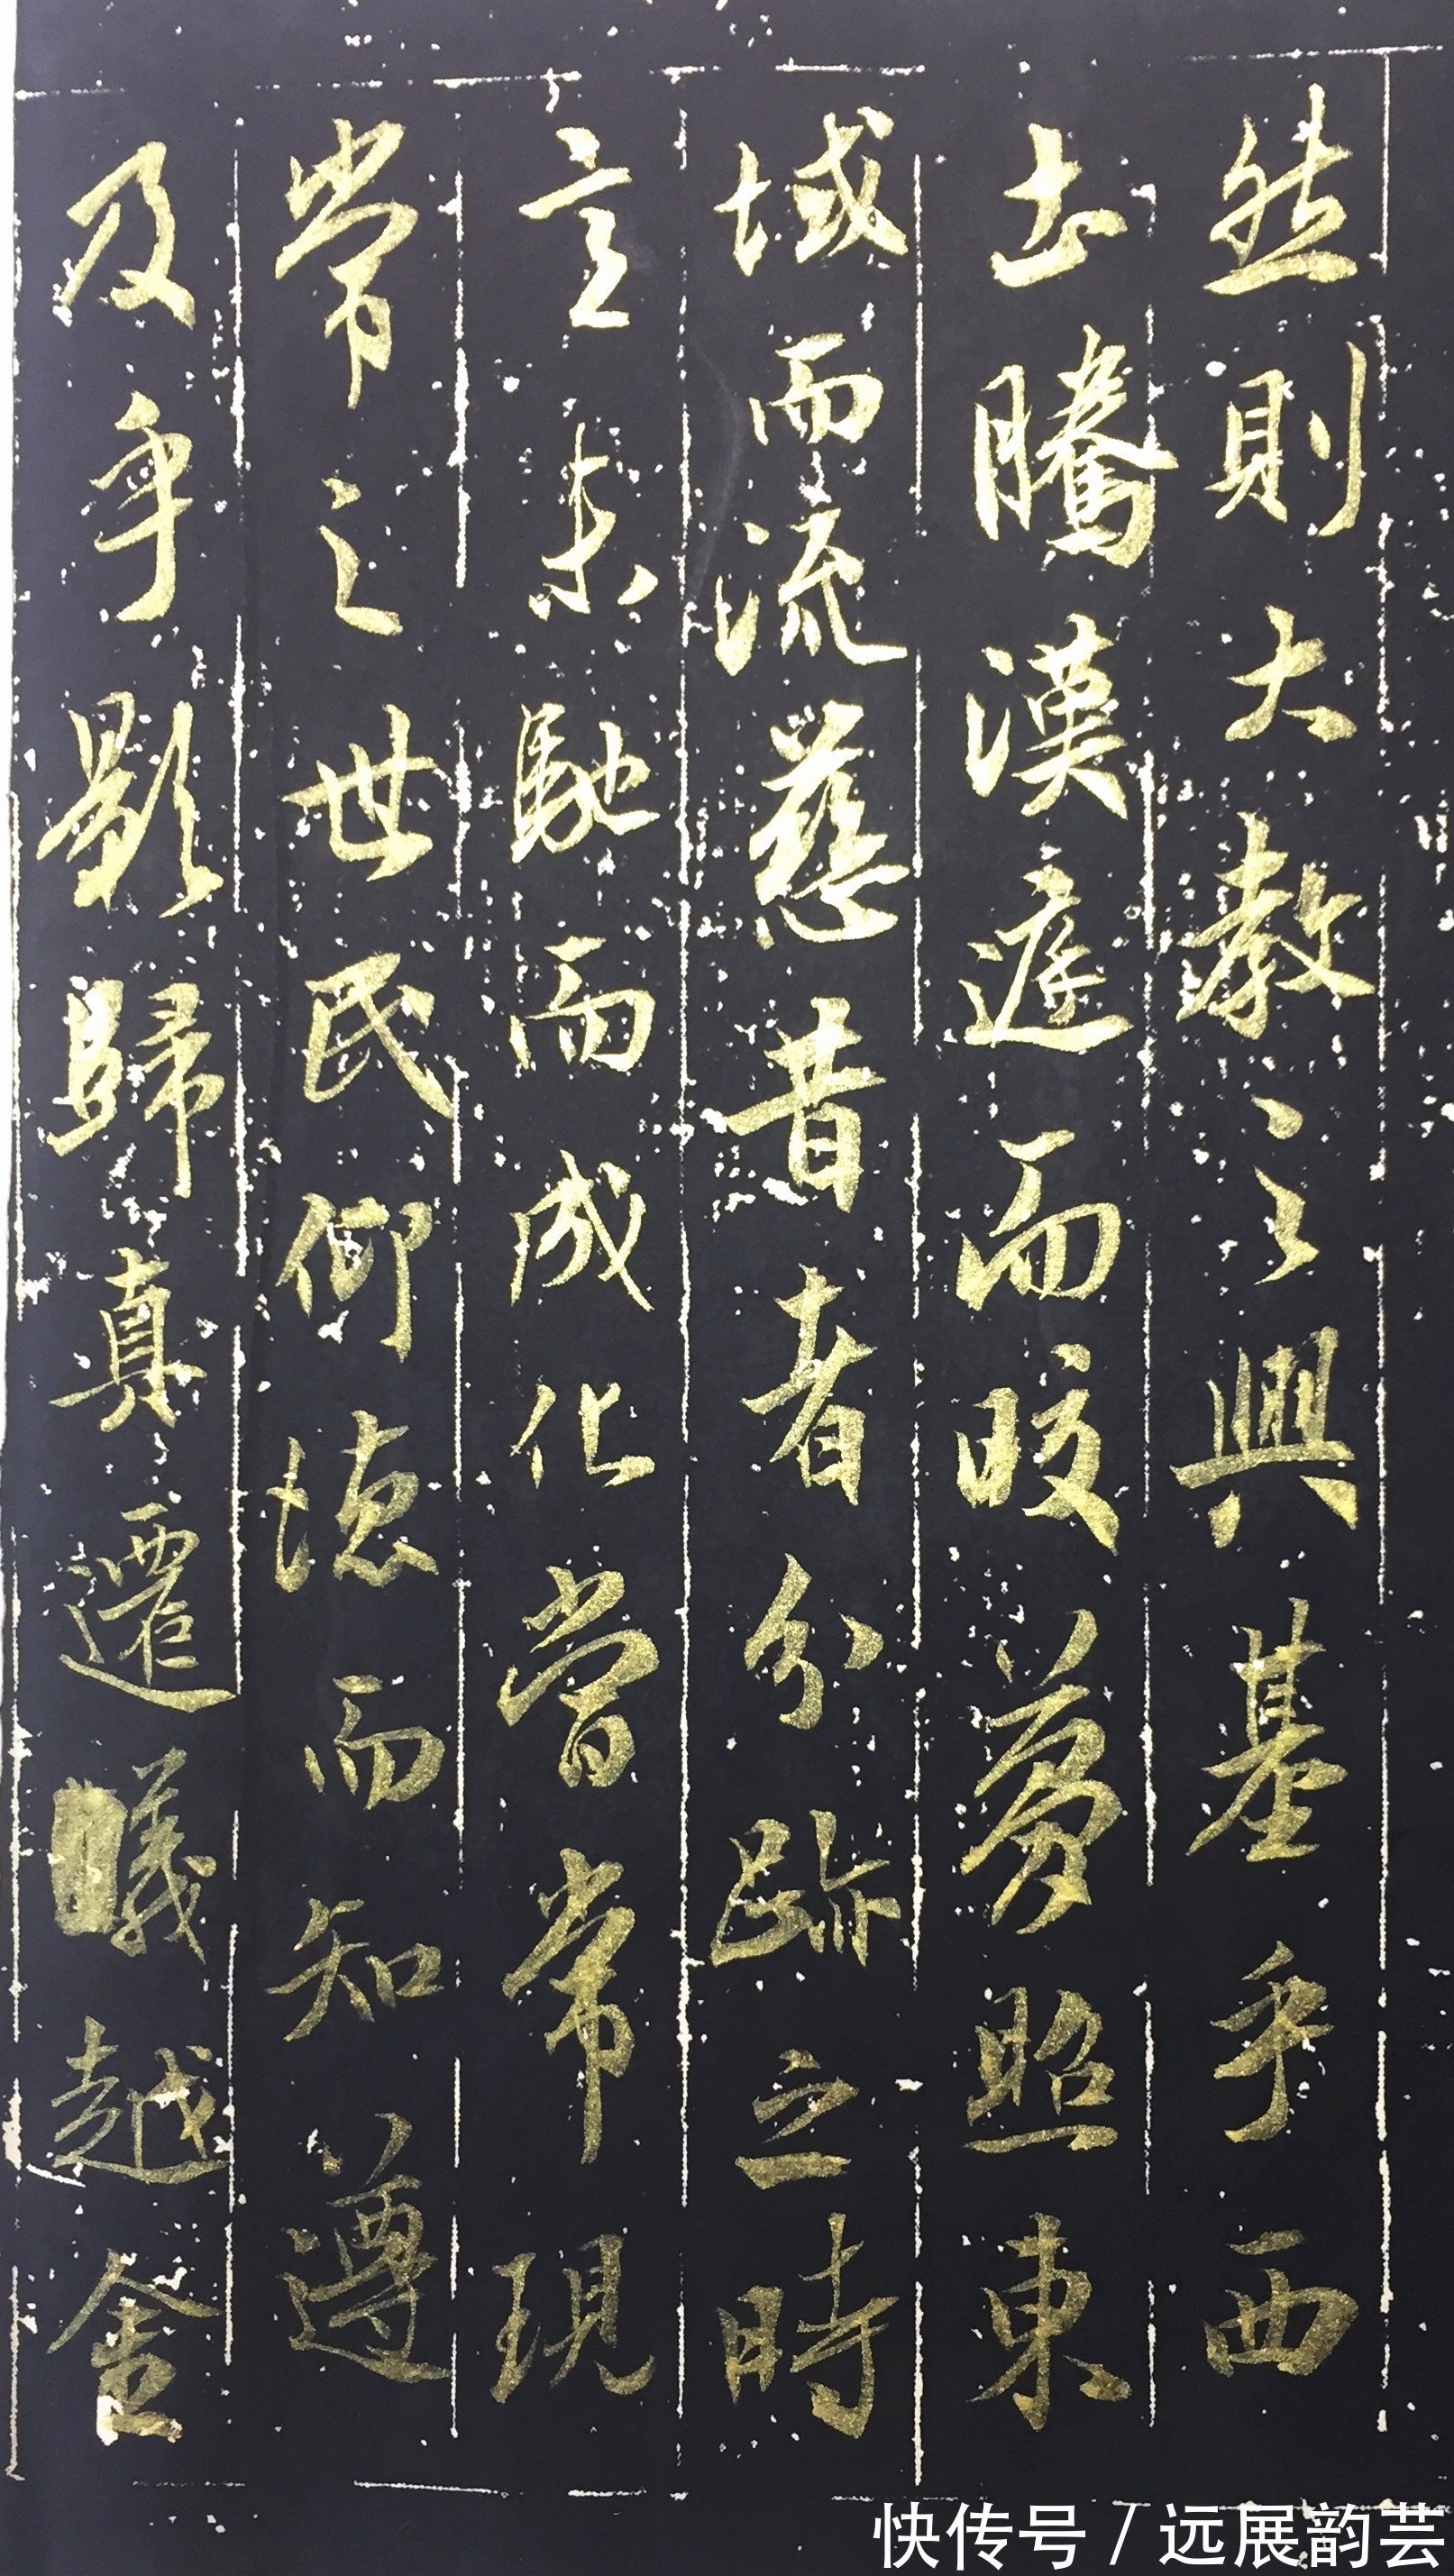 然則大教之興基乎西
土騰漢庭而皎夢照東
域而流慈昔者分跡之時
言未馳而成化當常現
常之世民仰德而知遵
及乎影歸真遷儀越金
快传号/远展韵芸